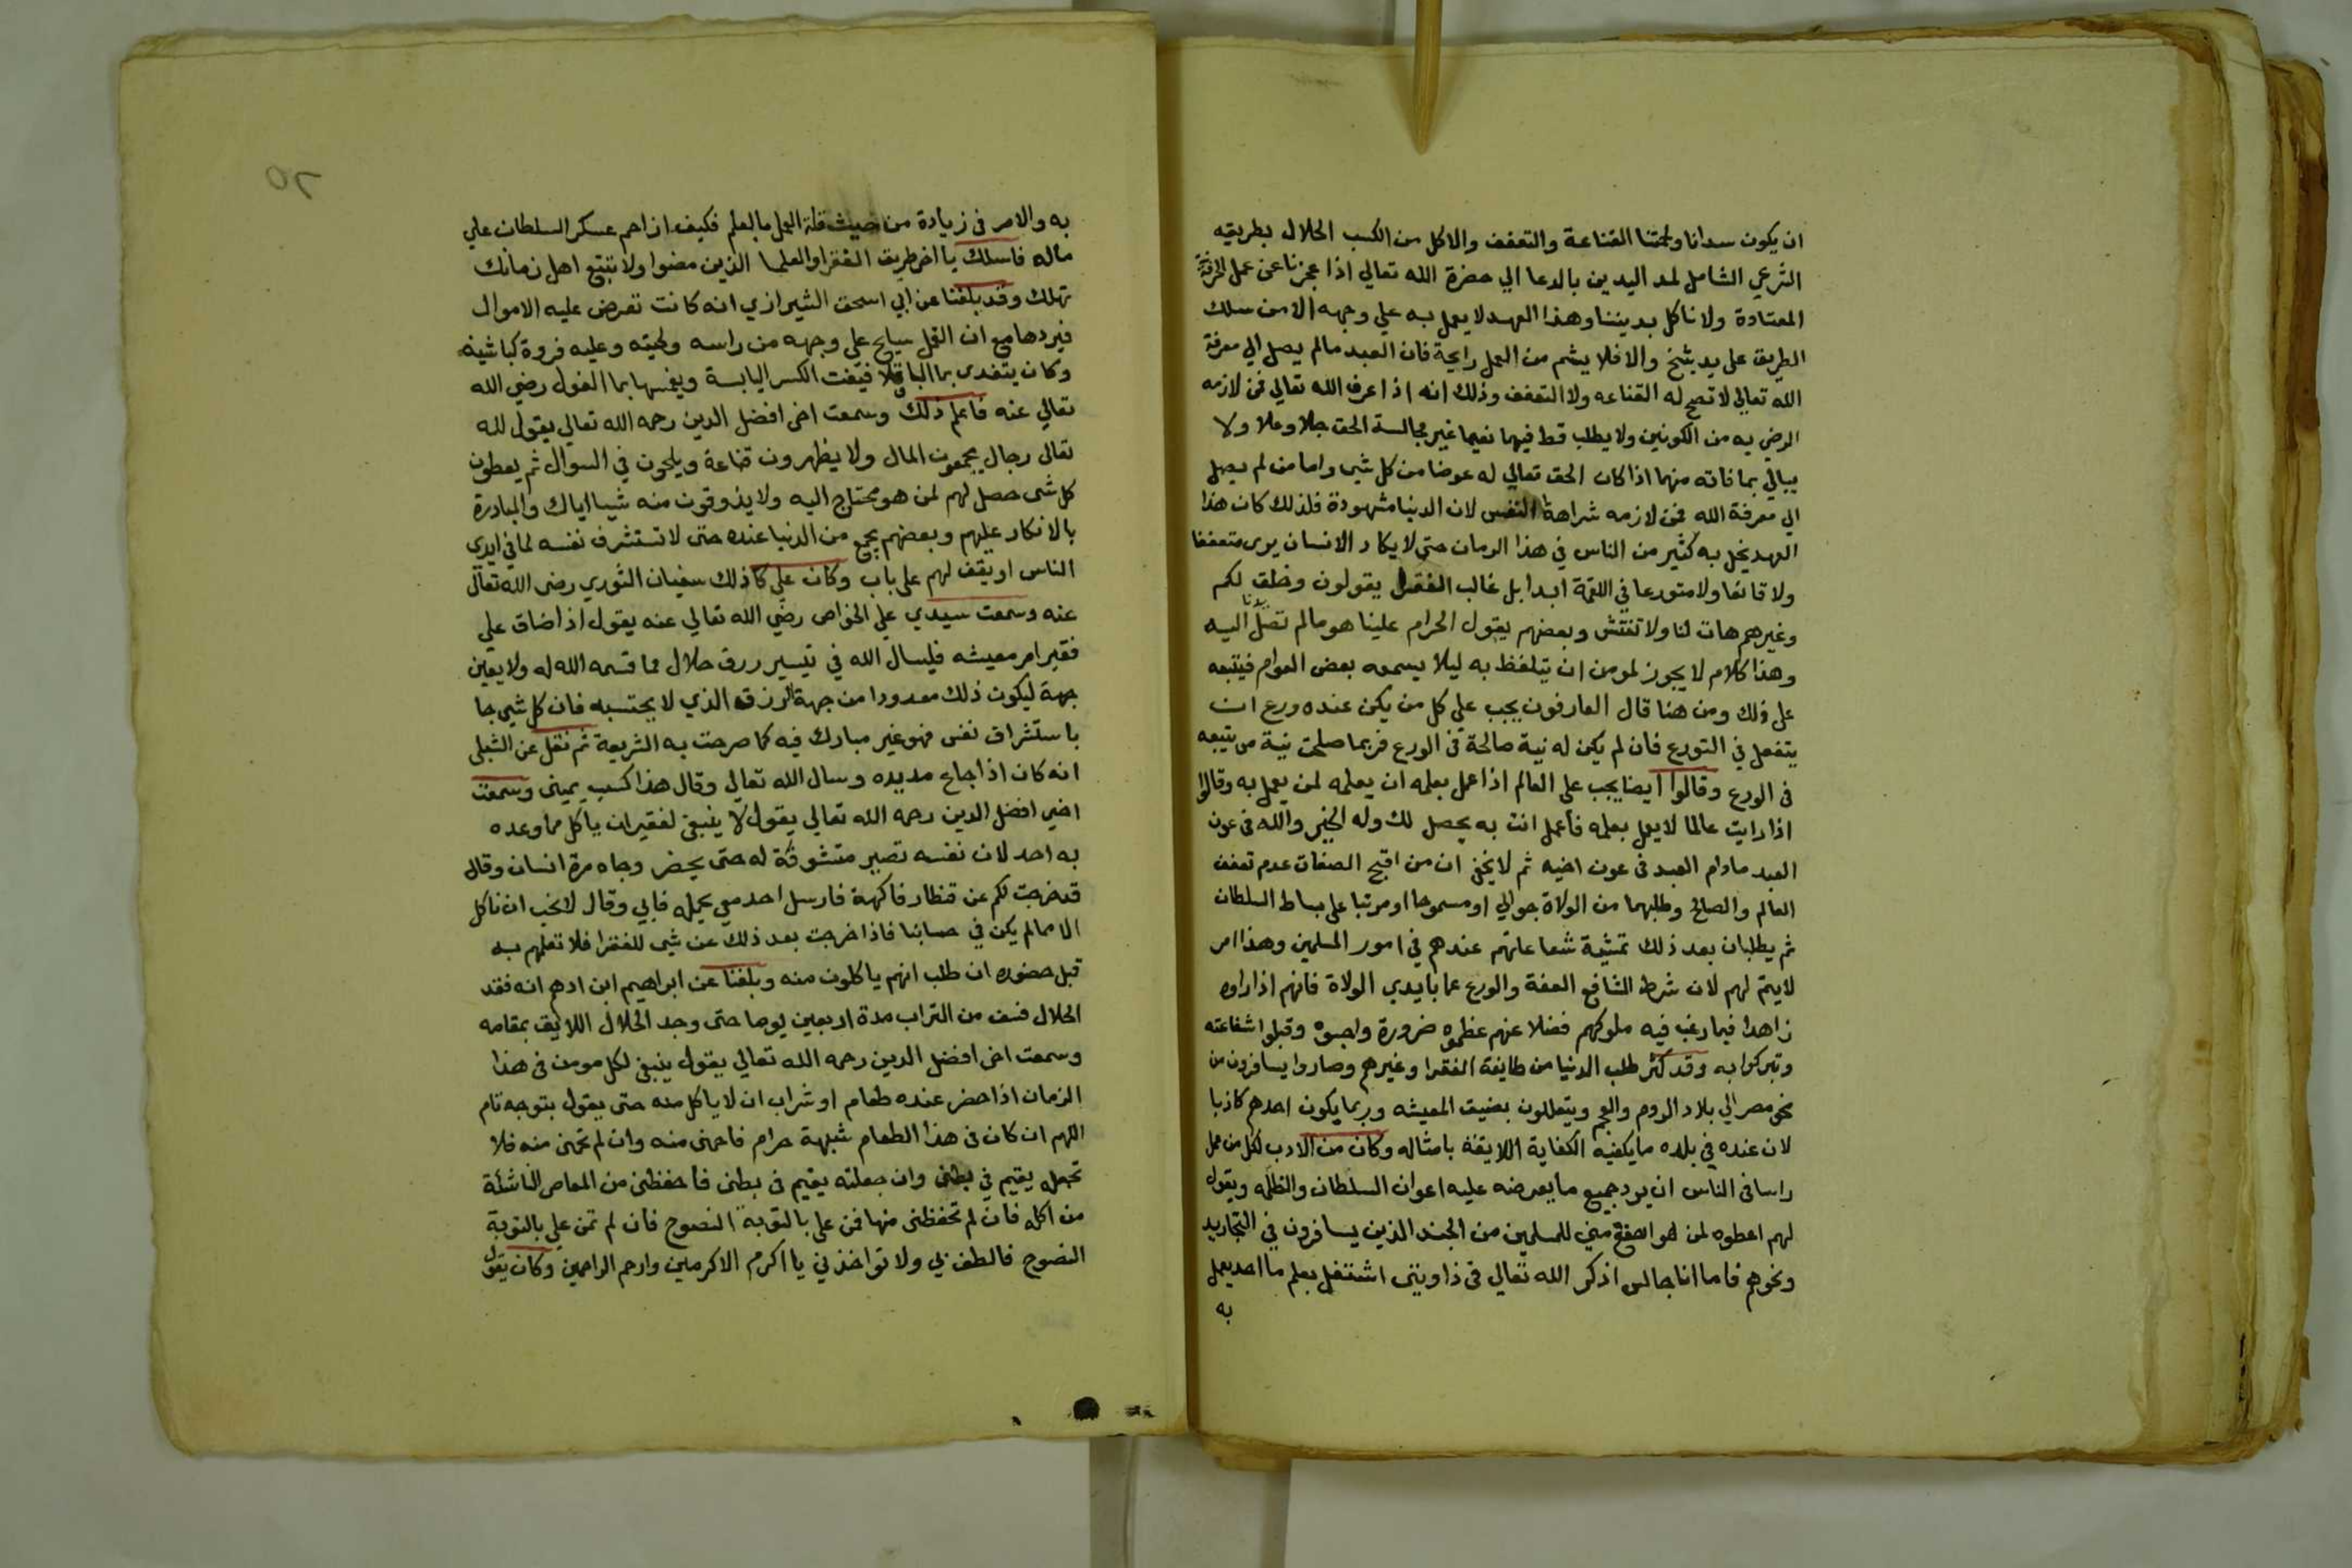 ان يكون سدانا ولحمتنا القناعة والتعفف والاكل من الكسب الحلال بطريقه
الشرعي الشامل لمد اليدين بالدعا الي حضرة الله تعالي اذا عجزنا عن عمل الحرفة
المعتادة ولا ناكل بديننا وهذا العهد لا يعمل به علي وجهه الا من سلك
الطريق على يد شيخ والا فلا يشم من العمل رايحة فان العبد مالم يصل الي معرفة
الله تعالي لا تصح له القناعه ولا التعفف وذلك انه اذا عرف الله تعالي فمن لازمه
الرضي به من الكونين ولا يطلب قط فيهما نعيما غير مجالسة الحق جلا وعلا ولا
يبالي بما فاته منهما اذا كان الحق تعالي له عوضا من كل شي واما من لم يصل
الي معرفة الله فمن لازمه شراهة النفس لان الدنيا مشهودة فلذلك كان هذا
العهد يخل به كثير من الناس في هذا الزمان حتي لا يكاد الانسان يرى متعففا
ولا قانعا ولا متورعا في اللقمة ابدا بل غالب الفقرا يقولون وخلق لكم
وغيرهم هات لنا ولا تفتش وبعضهم يقول الحرام علينا هو مالم تصل يدنا اليه
وهذا كلام لا يجوز لمومن ان يتلفظ به ليلا يسمعه بعض العوام فيتبعه
على ذلك ومن هنا قال العارفون يجب علي كل من يكن عنده ورع ان
يتفعل في التورع فان لم يكن له نية صالحة في الورع فربما صلحت نية من يتبعه
في الورع وقالوا ايضا يجب على العالم اذا عمل بعلمه ان يعلمه لمن يعمل به وقالوا
اذا رايت عالما لا يعمل بعلمه فاعمل انت به يحصل لك وله الخير والله في عون
العبد مادام العبد في عون اخيه ثم لا يخفي ان من اقبح الصفات عدم تعفف
العالم والصالح وطلبهما من الولاة جوالي او مسموحا او مرتبا على بساط السلطان
ثم يطلبان بعد ذلك تمشية شفاعاتهم عندهم في امور المسلمين وهذا امر
لا يتم لهم لان شرط الشافع العفة والورع عما بايدي الولاة فانهم اذا راوه
زاهدا فيما رغب فيه ملوكهم فضلا عنهم عظموه ضرورة واحبوه وقبلوا شفاعته
وتبركوا به وقد كثر طلب الدنيا من طايفة الفقرا وغيرهم وصاروا يسافرون من
نحو مصر الي بلاد الروم والعجم ويتعللون بضيق المعيشه وربما يكون احدهم كاذبا
لان عنده في بلده ما يكفيه الكفاية اللايقة بامثاله وكان من الادب لكل من عمل
راسا في الناس ان يرد جميع ما يعرضه عليه اعوان السلطان والظلمه ويقول
لهم اعطوه لمن هو انفع مني للمسلمين من الجند الذين يسافرون في التجاريد
ونحوهم فاما انا جالس اذكر الله تعالي في زاويتي اشتغل بعلم ما احد يعمل
به
٢٥
به والامر في زيادة من حيث قلة العمل بالعلم فكيف ازاحم عسكر السلطان علي
ماله فاسلك يا اخي طريق الفقرا والعلما الذين مضوا ولا تتبع اهل زمانك
تهلك وقد بلغنا عن ابي اسحق الشيرازي انه كانت تعرض عليه الاموال
فيردها مع ان القمل سايح علي وجهه من راسه ولحيته وعليه فروة كباشية
وكان يتغدى بما الباقلا فيفت الكسر اليابسة ويغمسها بما الفول رضي الله
تعالي عنه فاعلم ذلك وسمعت اخي افضل الدين رحمه الله تعالي يقول لله
تعالى رجال يجمعون المال ولا يظهرون قناعة ويلحون في السوال ثم يعطون
كل شي حصل لهم لمن هو محتاج اليه ولا يذوقون منه شيا اياك والمبادرة
بالانكار عليهم وبعضهم يجمع من الدنيا عنده حتى لا تستشرف نفسه لما في ايدي
الناس او يقف لهم على باب وكان علي ذلك سفيان الثوري رضي الله تعالي
عنه وسمعت سيدي علي الخواص رضي الله تعالي عنه يقول اذا ضاق علي
فقير امر معيشه فليسال الله في تيسير رزق حلال مما قسمه الله له ولا يعين
جهة ليكون ذلك معدودا من جهة الرزق الذي لا يحتسبه فان كل شي جا
باستشراف نفس فهو غير مبارك فيه كما صرحت به الشريعة ثم نقل عن الشبلى
انه كان اذا جاع مد يده وسال الله تعالي وقال هذا كسب يميني وسمعت
اخي افضل الدين رحمه الله تعالي يقول لا ينبغي لفقير ان ياكل مما وعده
به احد لان نفسه تصير متشوقة له حتى يحضر وجاه مرة انسان وقال
قد خرجت لكم عن قنطار فاكهة فارسل احد معي يحمله فابي وقال لا نحب ان ناكل
الا مالم يكن في حسابنا فاذا خرجت بعد ذلك عن شي للفقرا فلا تعلمهم به
قبل حضوره ان طلب انهم ياكلون منه وبلغنا عن ابراهيم ابن ادهم انه فقد
الحلال فسف من التراب مدة اربعين يوما حتى وجد الحلال اللايق بمقامه
وسمعت اخي افضل الدين رحمه الله تعالي يقول ينبغي لكل مومن في هذا
الزمان اذا حضر عنده طعام او شراب ان لا ياكل منه حتى يقول بتوجه تام
اللهم ان كان في هذا الطعام شبهة حرام فاحمني منه وان لم تحمني منه فلا
تجعله يقيم في بطني وان جعلته يقيم في بطني فاحفظني من المعاصي الناشئة
من اكله فان لم تحفظني منها فمن علي بالتوبة النصوح فان لم تمن علي بالتوبة
النصوح فالطف بي ولا تواخذني يا اكرم الاكرمين وارحم الراحمين وكان يقول